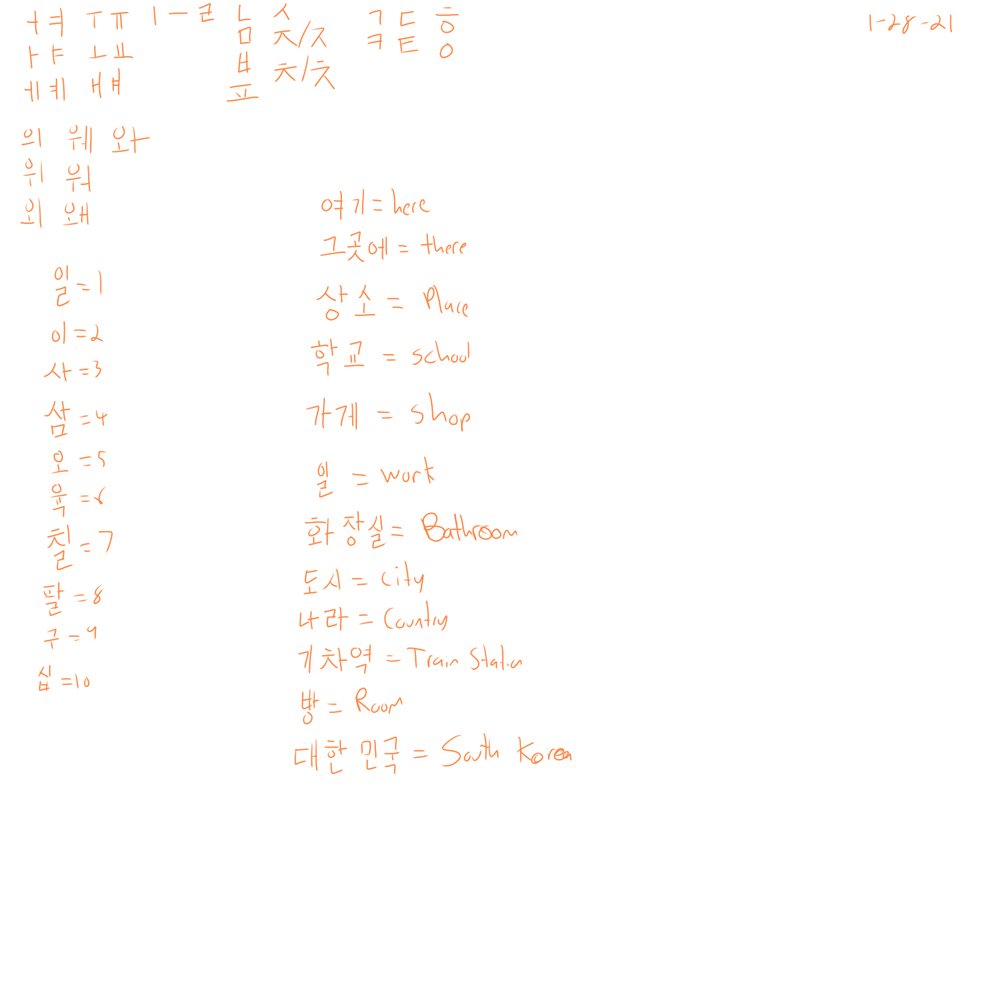 1-28-21
ㅓㅕ ㅜㅠ ㅣㅡㄹ
ㅏㅑ ㅗㅛ
ㅔㅖ ㅐㅒ
ㄴ
ㅁ
ㅂ
ㅍ
ㅅ
ㅈ/ㅈ
ㅊ/ㅊ
ㄱ ㄷ ㅎ
ㅋ ㅌ ㅇ
의 웨 와
위 워
외 왜
일=1
이=2
사=3
삼=4
오=5
육=6
칠=7
팔=8
구=9
십=10
여기=here
그곳에=there
상소=Place
학교=school
가게=shop
일=work
화장실=Bathroom
도시=City
나라=Country
기차역=Train Station
방=Room
대한민국=South Korea